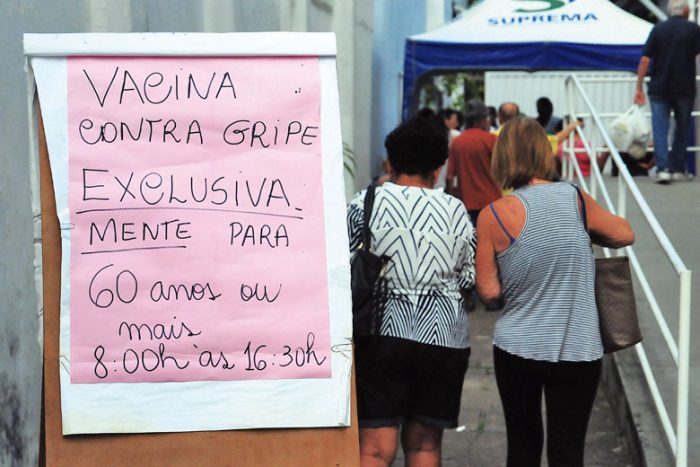 SUPREMA
VACINA
CONTRA GRIPE
EXCLUSIVA_
MENTE PARA
60 anos ou
mais
8:00h às 16:30h